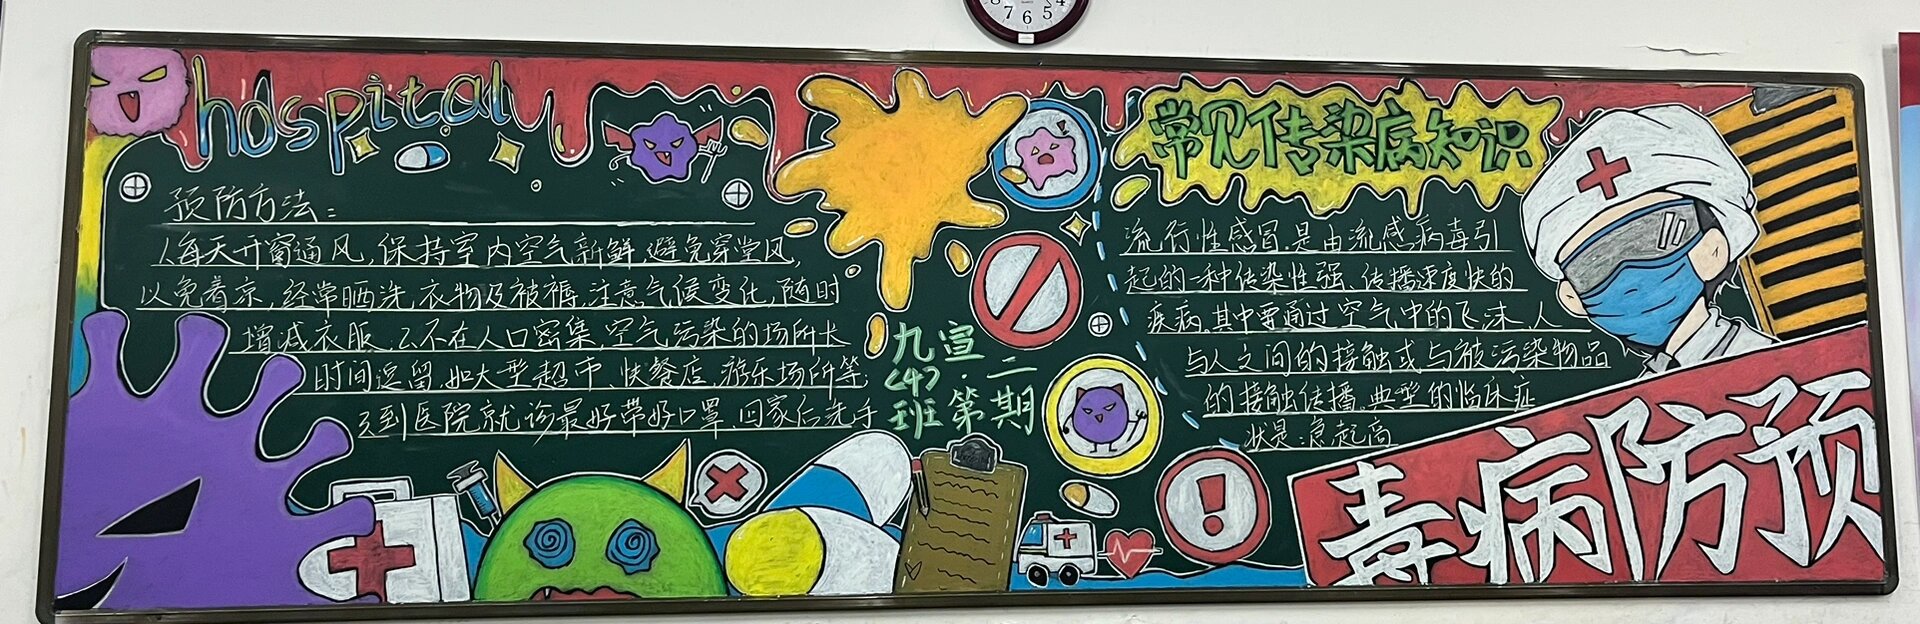 hospital
预防方法:
1.每天开窗通风,保持室内空气新鲜,避免穿堂风,
以免着凉,经常晒洗,衣物及被褥,注意气候变化,随时
增减衣服,2.不在人口密集,空气污染的场所长
时间逗留,如大型超市、快餐店、游乐场所等;
3.到医院就诊最好带好口罩,回家后洗手
九(4)班
宣·第二期
常见传染病知识
流行性感冒是由流感病毒引
起的一种传染性强、传播速度快的
疾病,其中要通过空气中的飞沫、人
与人之间的接触或与被污染物品
的接触传播,典型的临床症
状是:急起高
毒病防预
8 7 6 5 4